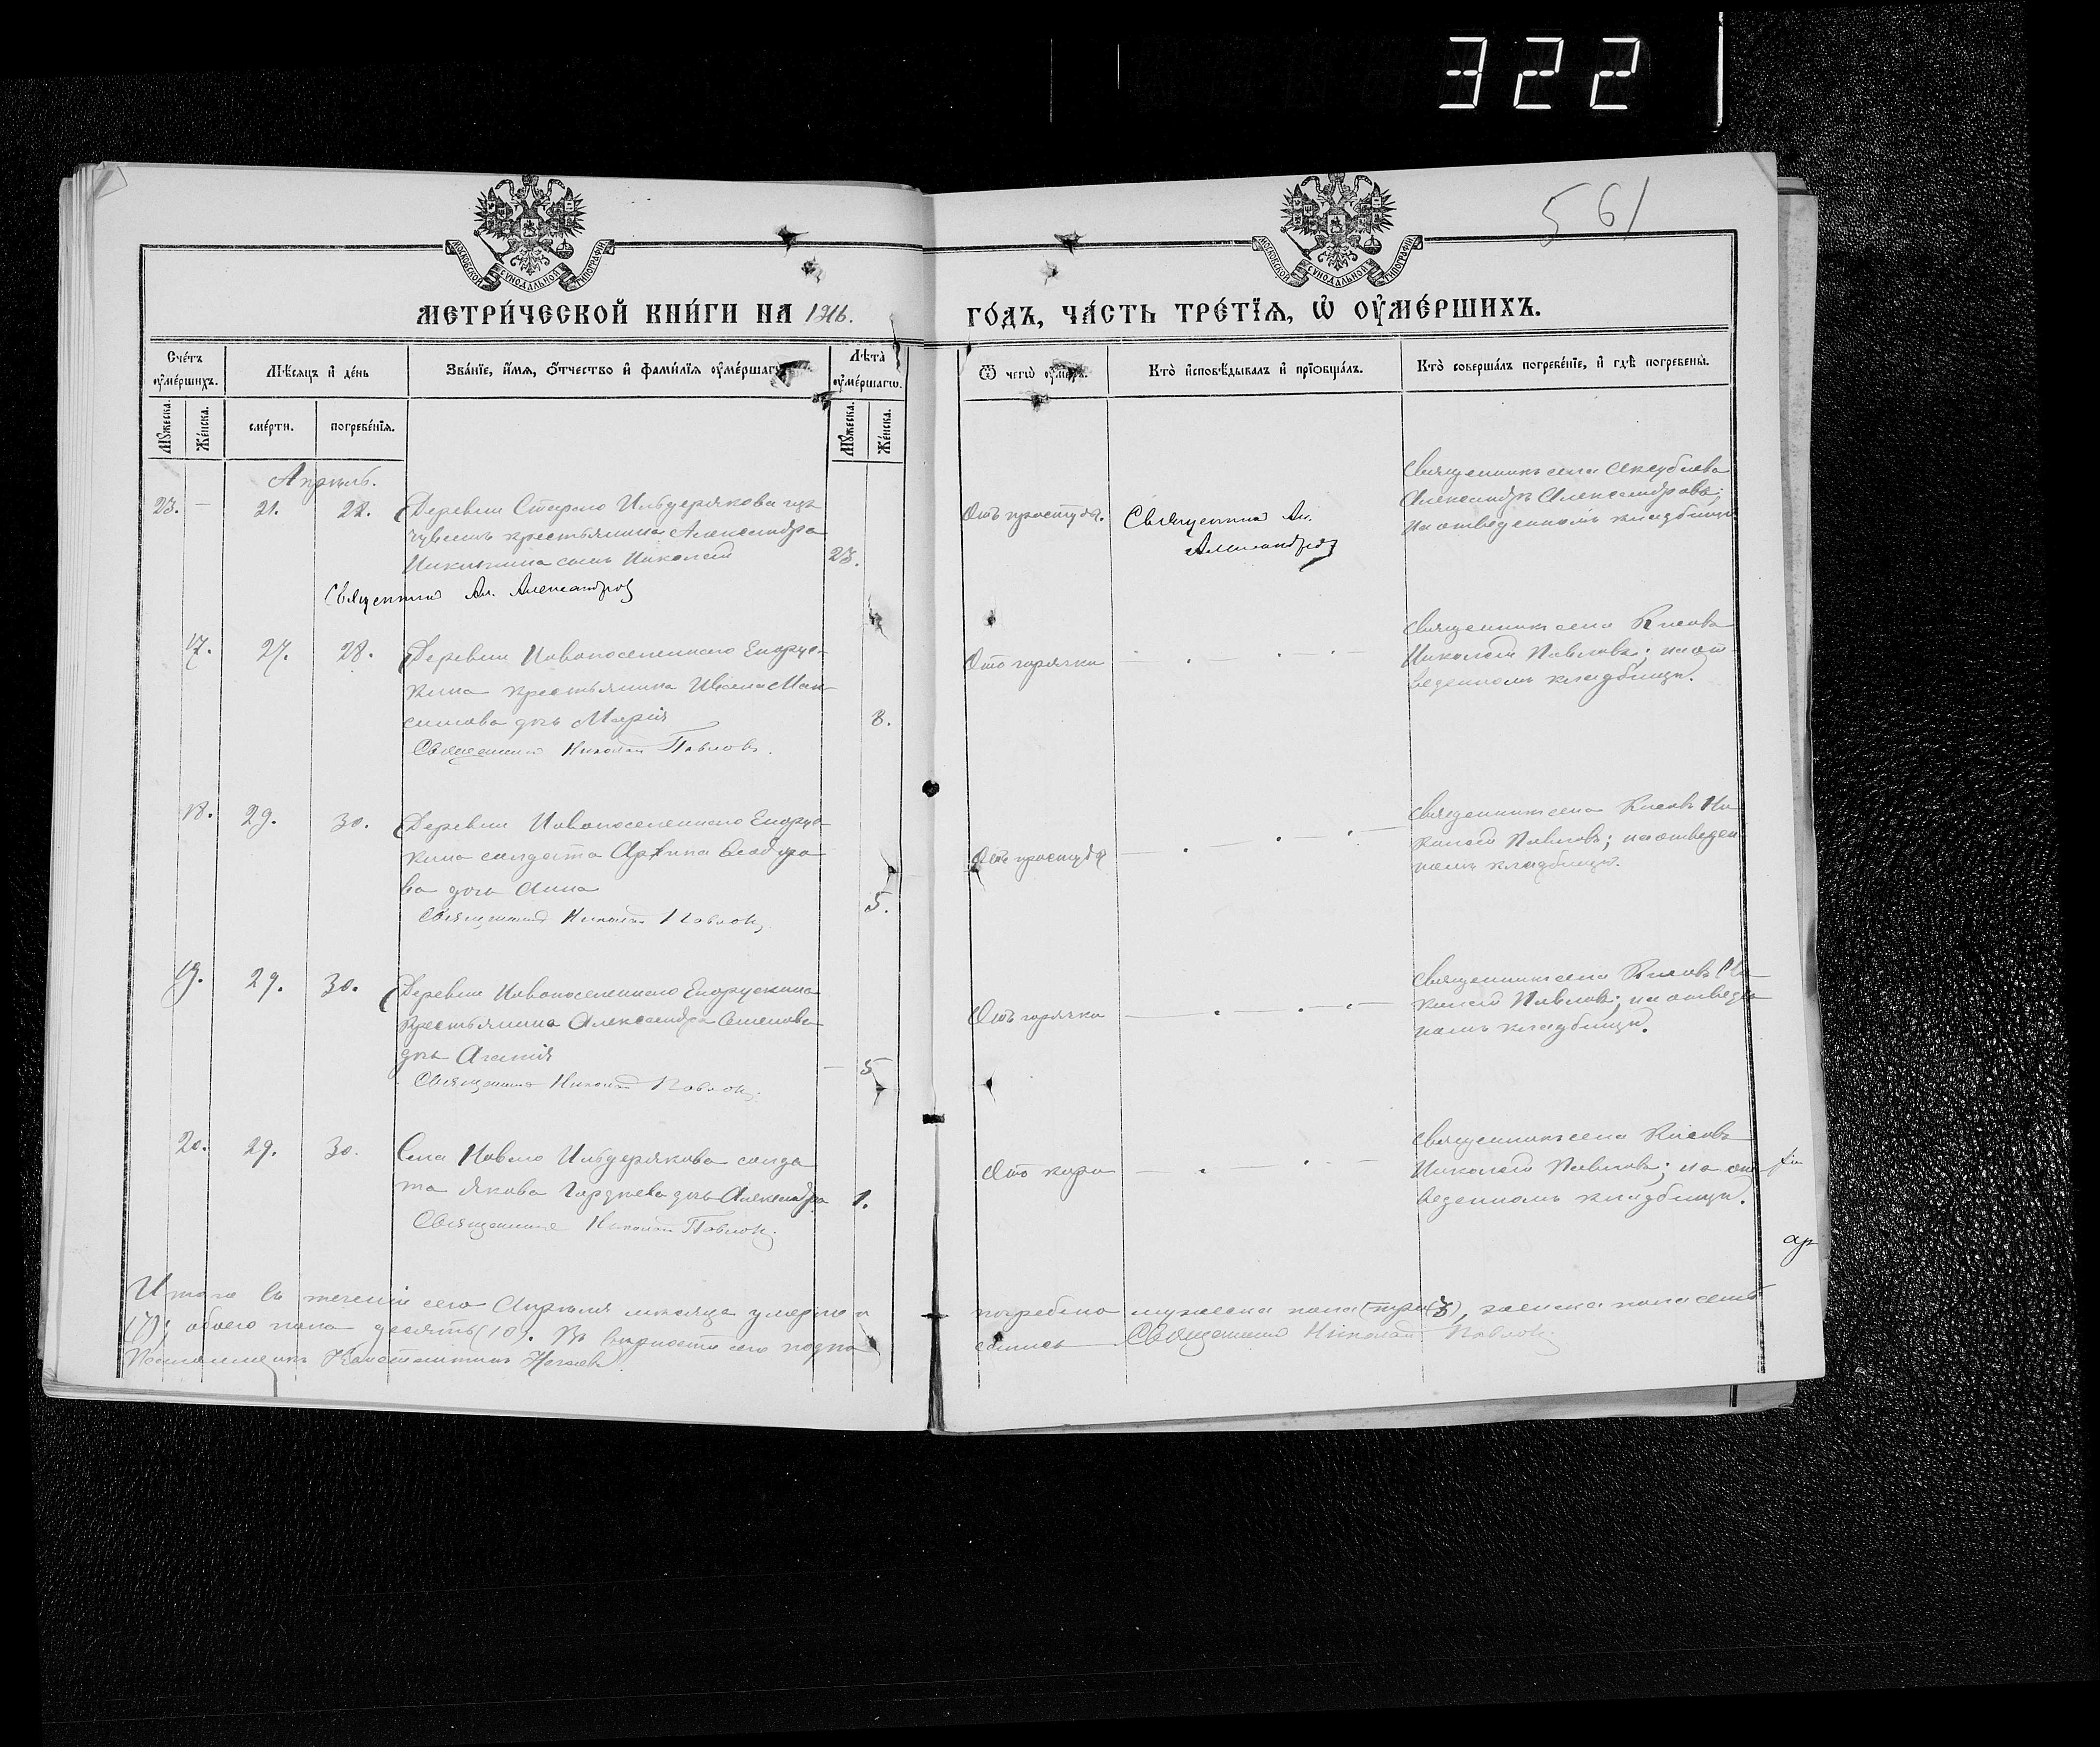 322
561
МОСКОВСКОЙ СѴНОДАЛЬНОЙ ТИПОГРАФІИ
МОСКОВСКОЙ СѴНОДАЛЬНОЙ ТИПОГРАФІИ
МЕТРИ́ЧЕСКОЙ КНИ́ГИ НА 1916.
ГО́ДЪ, ЧА́СТЬ ТРЕ́ТЇѦ, Ѡ҆ ОУ҆МЕ́РШИХЪ.
Сче́тъ оу҆ме́ршихъ.
Мѣ́сѧцъ и҆ де́нь
Зва́нїе, и҆́мѧ, ѻ҆́тчество и҆ фами́лїѧ оу҆ме́ршагѡ
Лѣ́та оу҆ме́ршагѡ.
Ѿ чегѡ̀ оу҆́меръ.
Кто̀ и҆сповѣ́дывалъ и҆ прїѡбща́лъ.
Кто̀ соверша́лъ погребе́нїе, и҆ гдѣ̀ погребены̀.
Мꙋ́жеска.
Же́нска.
сме́рти.
погребе́нїѧ.
Мꙋ́жеска.
Же́нска.
Апрѣль.
23. — 21. 22. Деревни Стараго Ильдерякова изъ
чувашъ крестьянина Александра
Никитина сынъ Николай 23.
Священникъ Ал. Александровъ
Отъ простуды.
Священникъ Ал.
Александровъ
Священникъ села
Александръ Александровъ;
на отведенномъ кладбищѣ
17. 27. 28. Деревни Новопоселеннаго Егорус-
кина крестьянина Ивана Мак-
симова дочь Марія 8.
Священникъ Николай Павловъ.
Отъ горячки
Священникъ села
Николай Павловъ; на от
веденномъ кладбищѣ.
18. 29. 30. Деревни Новопоселеннаго Егорус-
кина солдата
ва дочь Анна 5.
Священникъ Николай Павловъ.
Отъ простуды
Священникъ села Ни
колай Павловъ; на отведен
номъ кладбищѣ.
19. 29. 30. Деревни Новопоселеннаго Егорускина
крестьянина Александра Семенова
дочь Агапія — 5
Священникъ Николай Павловъ.
Отъ горячки
Священникъ села Ни-
колай Павловъ; на отведен
номъ кладбищѣ.
20. 29. 30. Села Новаго Ильдерякова солда
та Якова Гордѣева дочь Александра 1.
Священникъ Николай Павловъ.
Отъ кори
Священникъ села
Николай Павловъ; на от
веденномъ кладбищѣ.
Итого въ теченіи сего Апрѣля мѣсяца умерло и погребено мужеска пола (три) 3, женска пола семь
(7), обоего пола десять (10). Въ вѣрности сего подпи
сались Священникъ Николай Павловъ.
Псаломщикъ Константинъ